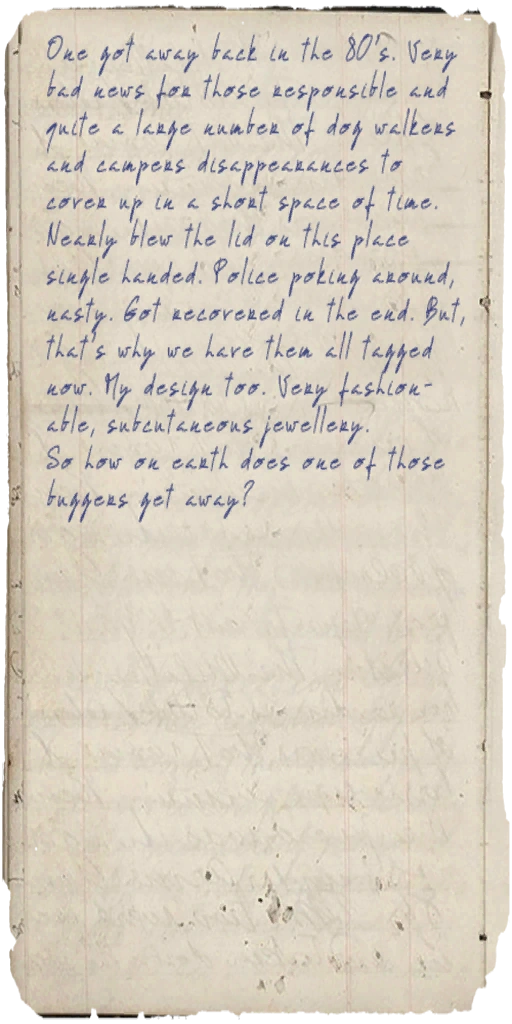 One got away back in the 80's. Very
bad news for those responsible and
quite a large number of dog walkers
and campers disappearances to
cover up in a short space of time.
Nearly blew the lid on this place
single handed. Police poking around,
nasty. Got recovered in the end. But,
that's why we have them all tagged
now. My design too. Very fashion-
able, subcutaneous jewellery.
So how on earth does one of those
buggers get away?